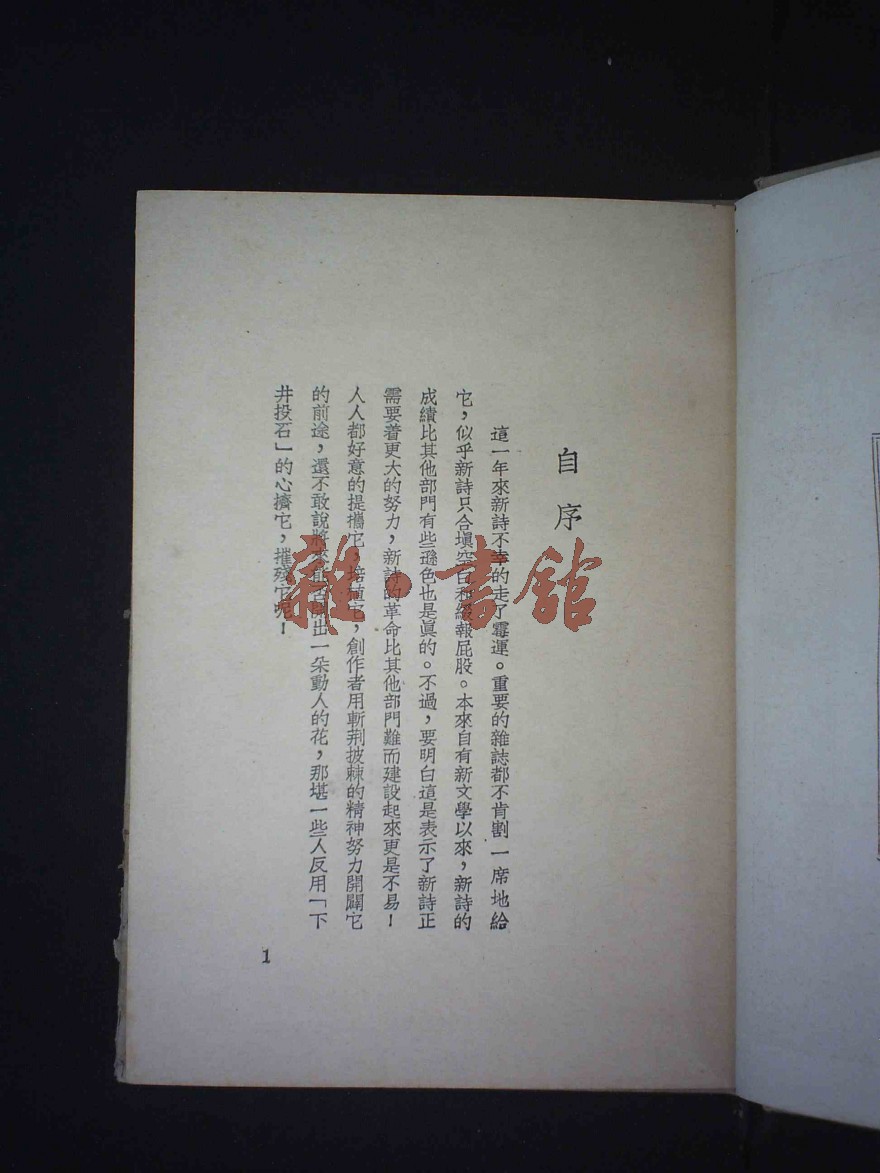 自序
這一年來新詩不幸的走了霉運。重要的雜誌都不肯割一席地給
它，似乎新詩只合塡空白和綴報屁股。本來自有新文學以來，新詩的
成績比其他部門有些遜色也是眞的。不過，要明白這是表示了新詩正
需要着更大的努力，新詩的革命比其他部門難而建設起來更是不易！
人人都好意的提攜它，培植它，創作者用斬荆披棘的精神努力開闢它
的前途，還不敢說將來能否開出一朵動人的花，那堪一些人反用「下
井投石」的心擠它，摧殘它呢！
1
雜·書館